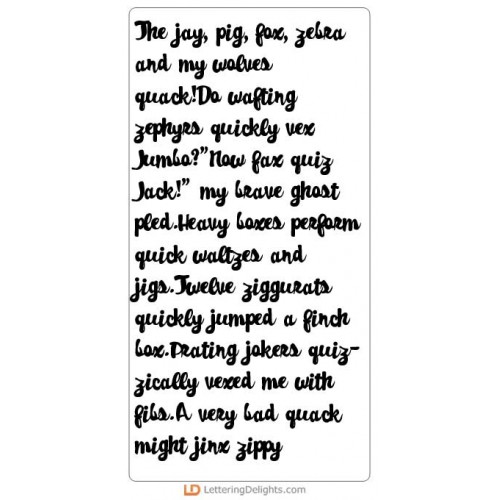 The jay, pig, fox, zebra
and my wolves
quack!Do wafting
zephyrs quickly vex
Jumbo?"Now fax quiz
Jack!" my brave ghost
pled.Heavy boxes perform
quick waltzes and
jigs.Twelve ziggurats
quickly jumped a finch
box.Prating jokers quiz-
zically vexed me with
fibs.A very bad quack
might jinx zippy
LD LetteringDelights.com